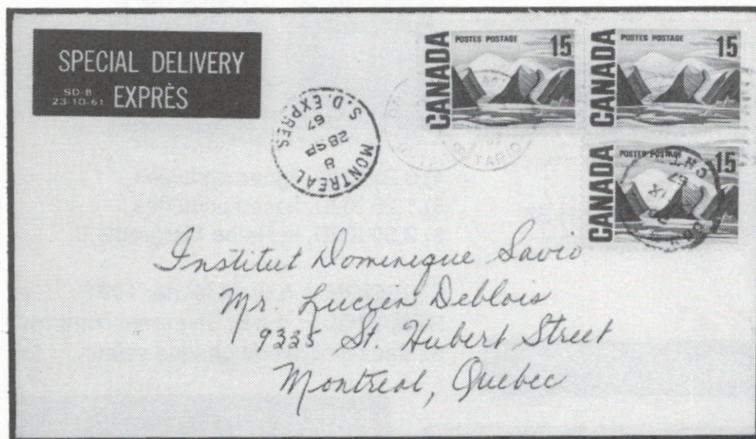 SPECIAL DELIVERY
SD-8
23-10-61
EXPRÈS
CANADA
POSTES POSTAGE
15
CANADA
POSTES POSTAGE
15
CANADA
POSTES POSTAGE
15
MONTREAL
8
28 SP
67
S.D. EXPRES
Institut Dominique Savio
Mr. Lucien Deblois
9335 St. Hubert Street
Montreal, Quebec